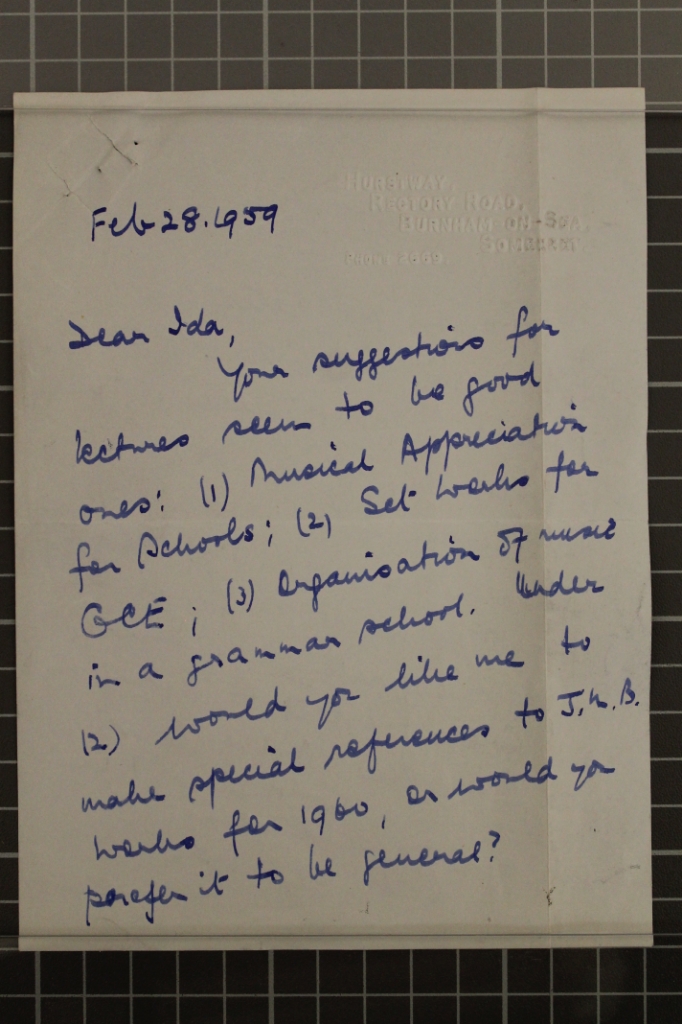 HURSTWAY,
RECTORY ROAD,
BURNHAM-ON-SEA,
SOMERSET.
PHONE 2669.
Feb 28. 1959
Dear Ida,
Your suggestions for
lectures seem to be good
ones: (1) Musical Appreciation
for Schools; (2) Set Works for
GCE; (3) Organisation of music
in a grammar school. Under
(2) would you like me to
make special references to J.M.B.
works for 1960, or would you
prefer it to be general?